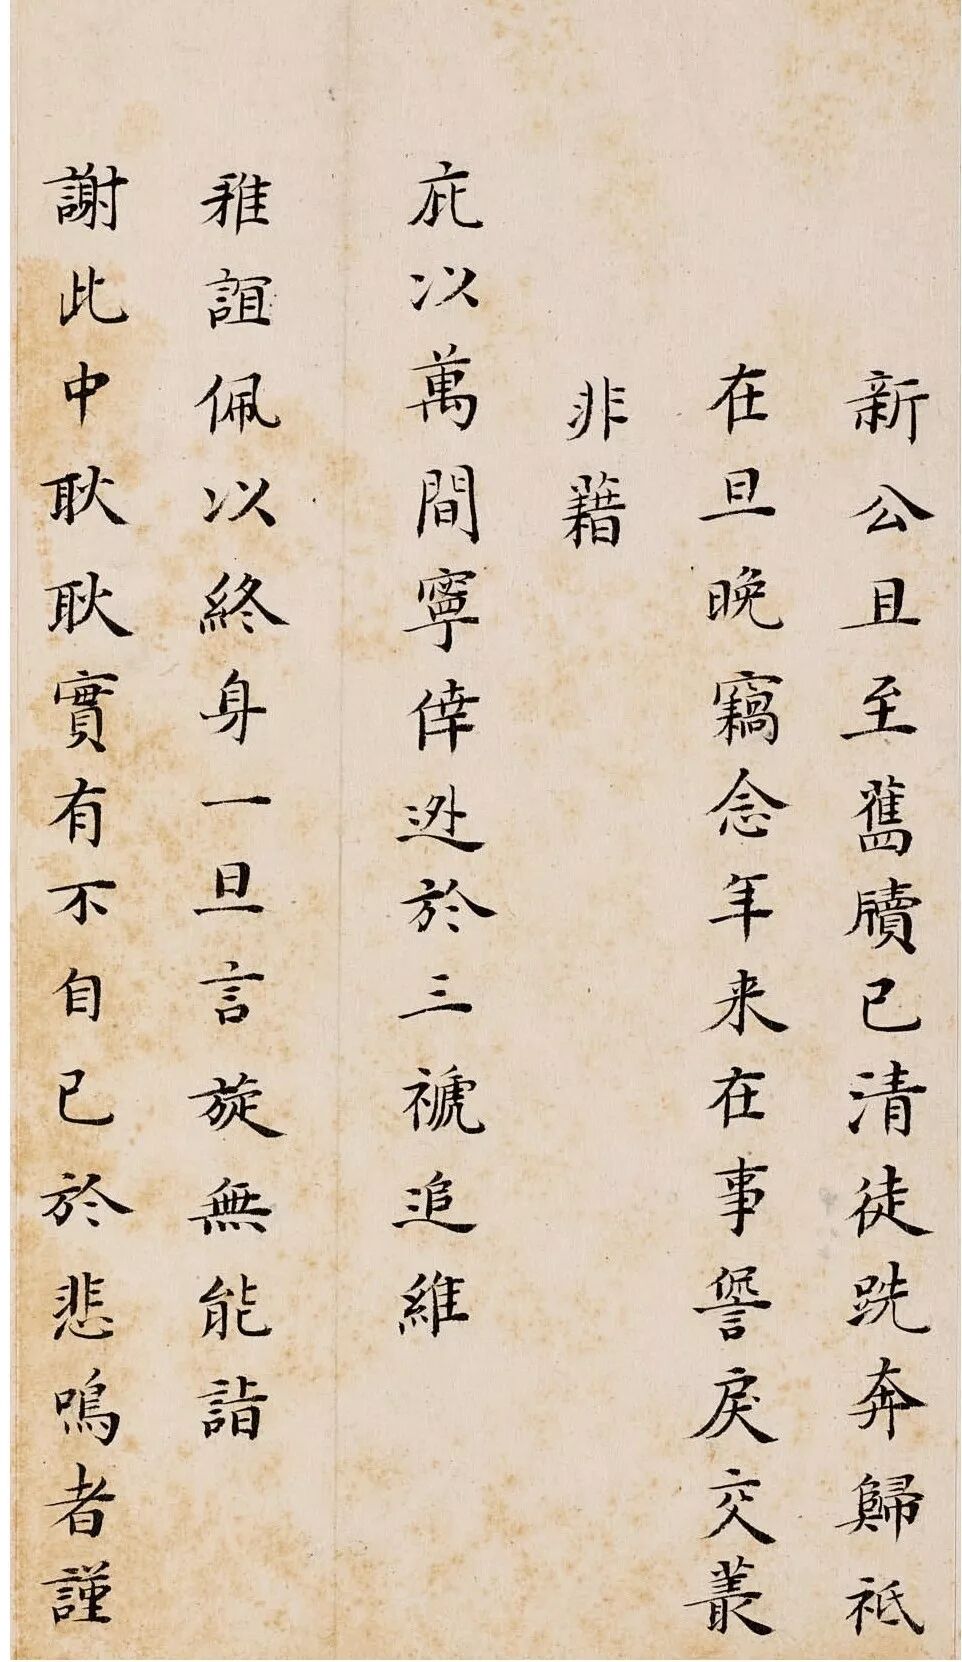 新公且至舊牘已清徒跣奔歸祗
在旦晚竊念年来在事諐戾交叢
非藉
庇以萬間寧倖迯於三褫追維
雅誼佩以終身一旦言旋無能詣
謝此中耿耿實有不自已於悲鳴者謹